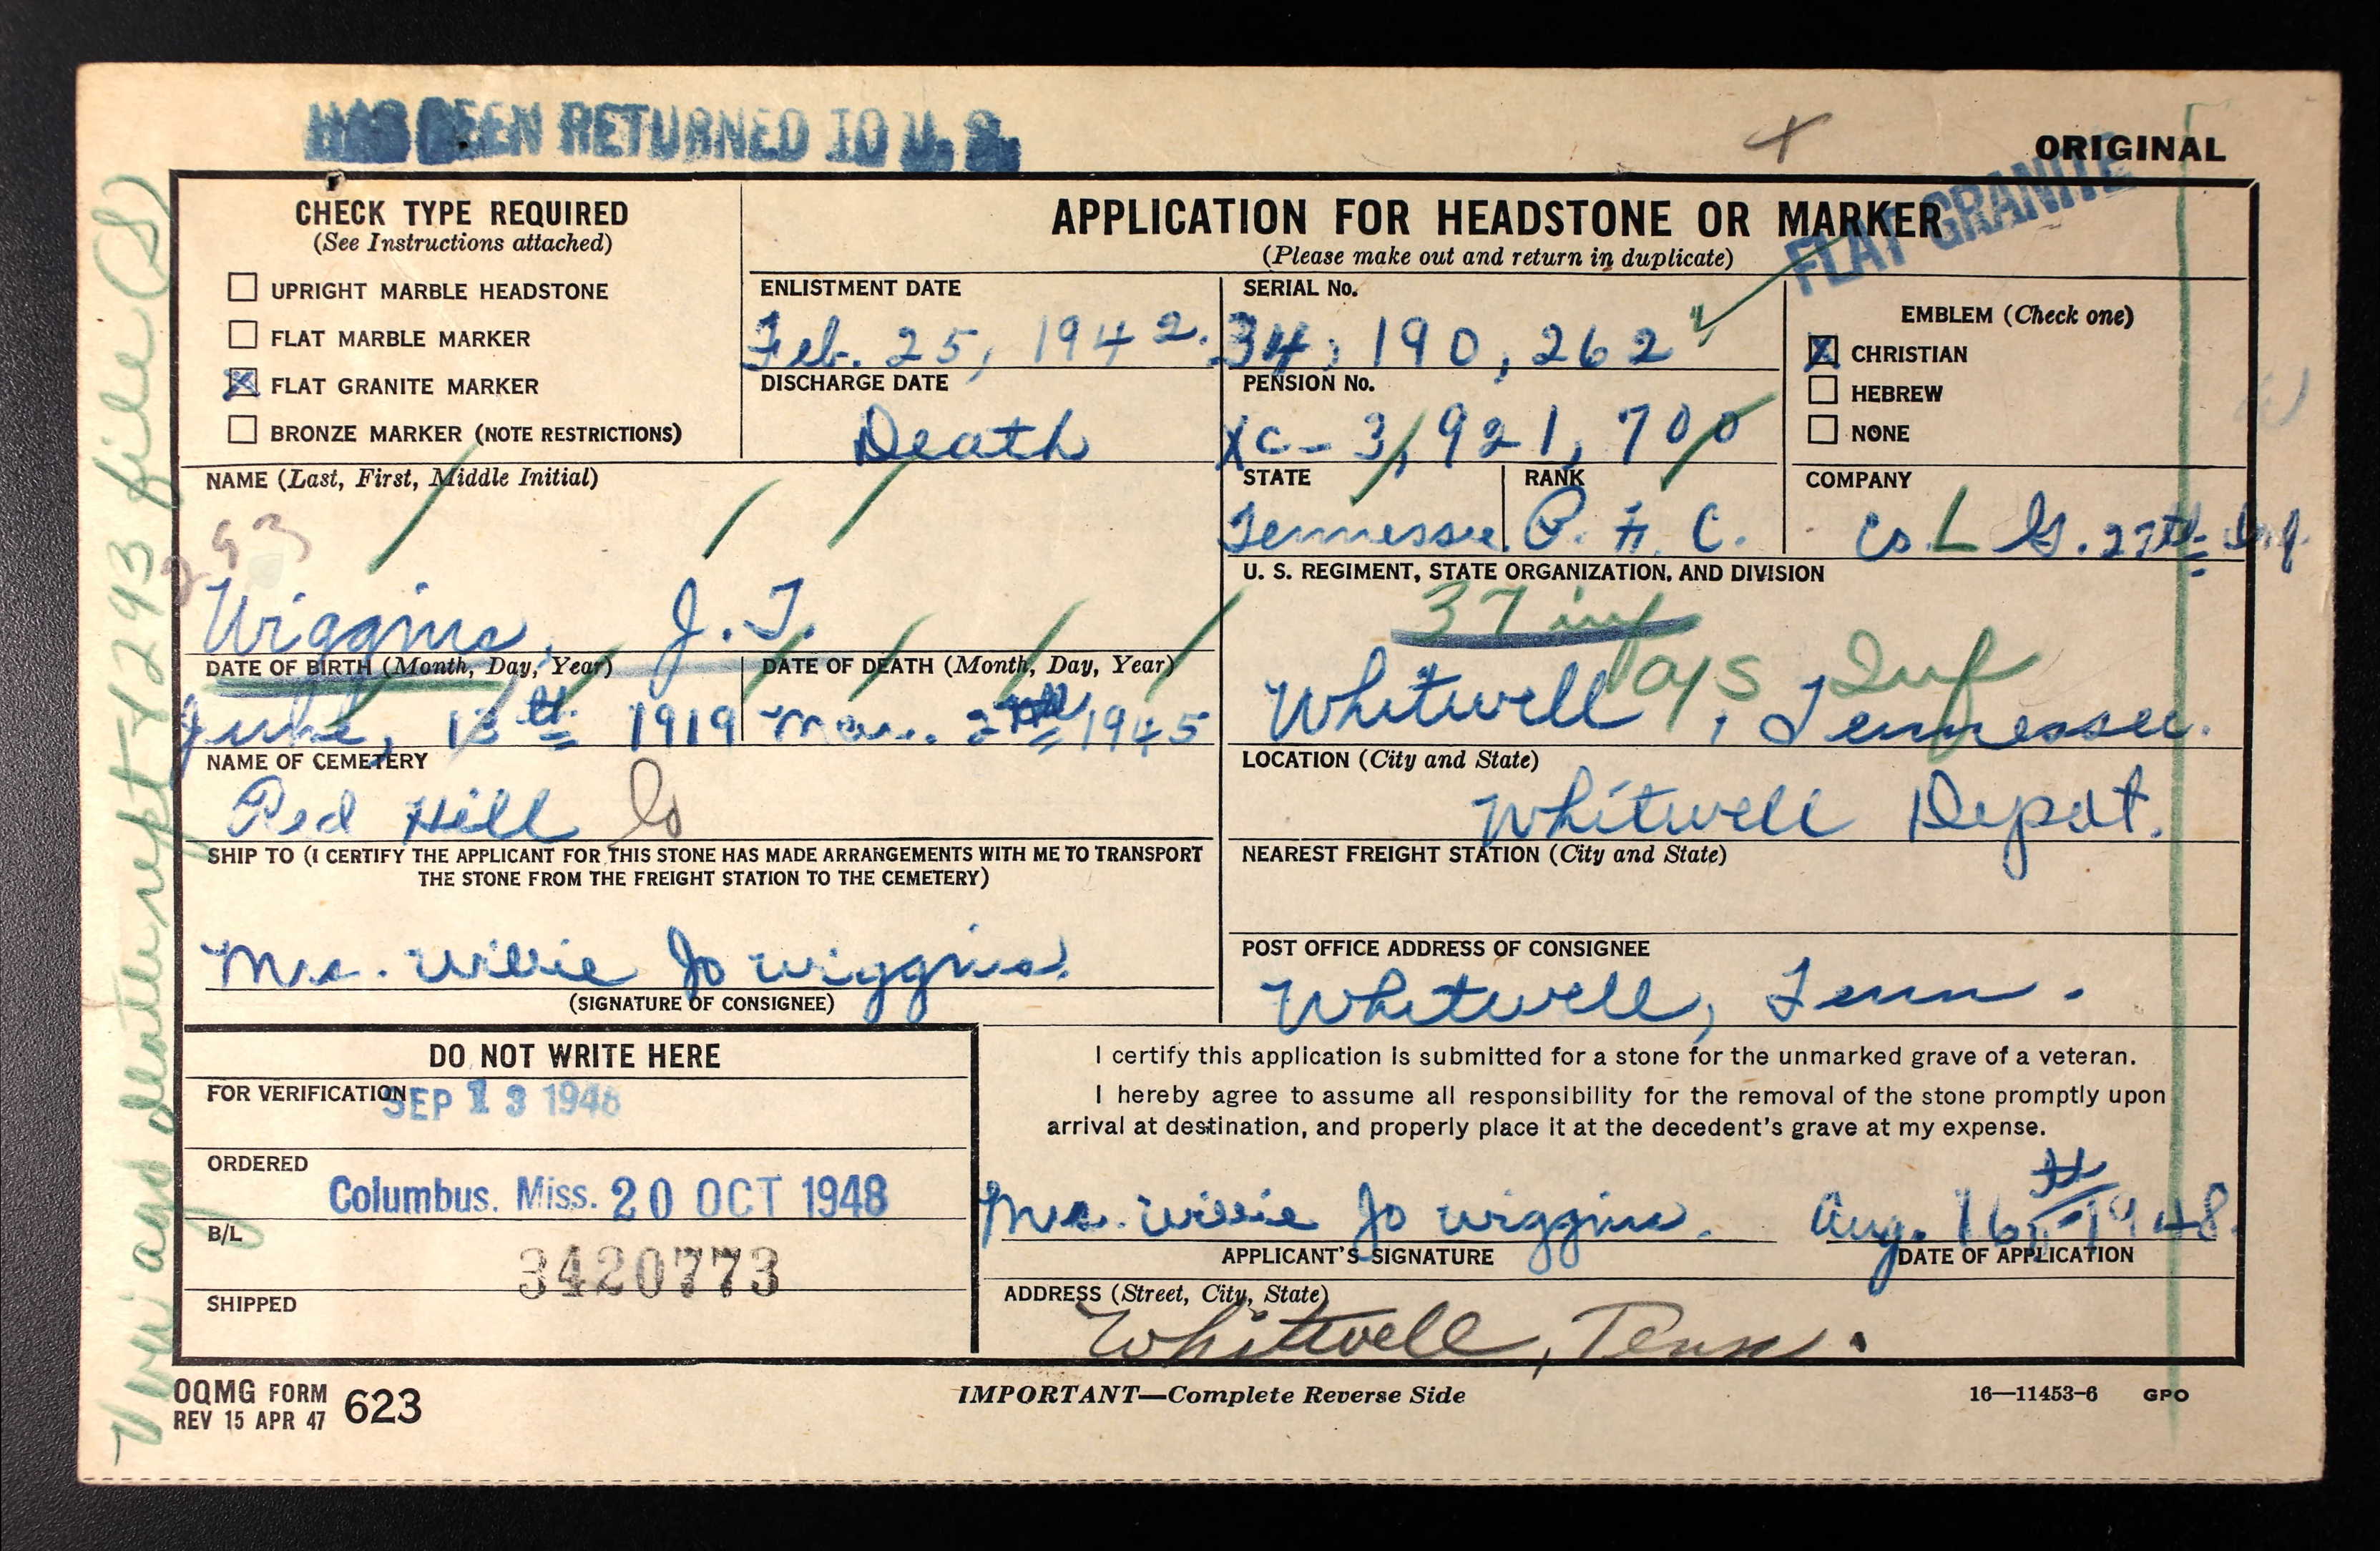 HAS BEEN RETURNED TO U. S.
ORIGINAL
FLAT GRANITE
CHECK TYPE REQUIRED
(See Instructions attached)
UPRIGHT MARBLE HEADSTONE
FLAT MARBLE MARKER
X FLAT GRANITE MARKER
BRONZE MARKER (NOTE RESTRICTIONS)
APPLICATION FOR HEADSTONE OR MARKER
(Please make out and return in duplicate)
ENLISTMENT DATE
Feb. 25, 1942.
SERIAL No.
34,190,262
DISCHARGE DATE
Death
PENSION No.
XC-3,921,700
EMBLEM (Check one)
X CHRISTIAN
HEBREW
NONE
NAME (Last, First, Middle Initial)
293
Wiggins, J.T.
STATE
Tennessee.
RANK
P.F.C.
COMPANY
Co. L G. 27th Inf.
U. S. REGIMENT, STATE ORGANIZATION, AND DIVISION
37 inf
a/s Inf
Whitwell, Tennessee.
DATE OF BIRTH (Month, Day, Year)
June, 13th 1919
DATE OF DEATH (Month, Day, Year)
Mar. 2 1945
NAME OF CEMETERY
Red Hill
LOCATION (City and State)
Whitwell Depot.
SHIP TO (I CERTIFY THE APPLICANT FOR THIS STONE HAS MADE ARRANGEMENTS WITH ME TO TRANSPORT
THE STONE FROM THE FREIGHT STATION TO THE CEMETERY)
NEAREST FREIGHT STATION (City and State)
Mrs. Willie Jo Wiggins.
(SIGNATURE OF CONSIGNEE)
POST OFFICE ADDRESS OF CONSIGNEE
Whitwell, Tenn.
DO NOT WRITE HERE
FOR VERIFICATION
SEP 13 1948
ORDERED
Columbus. Miss. 20 OCT 1948
B/L
3420773
SHIPPED
I certify this application is submitted for a stone for the unmarked grave of a veteran.
I hereby agree to assume all responsibility for the removal of the stone promptly upon
arrival at destination, and properly place it at the decedent's grave at my expense.
Mrs. Willie Jo Wiggins. Aug. 16th-1948.
APPLICANT'S SIGNATURE
DATE OF APPLICATION
ADDRESS (Street, City, State)
Whitwell, Tenn.
OQMG FORM 623
REV 15 APR 47
IMPORTANT—Complete Reverse Side
16—11453-6 GPO
Veri ago death rept + 293 file (S)